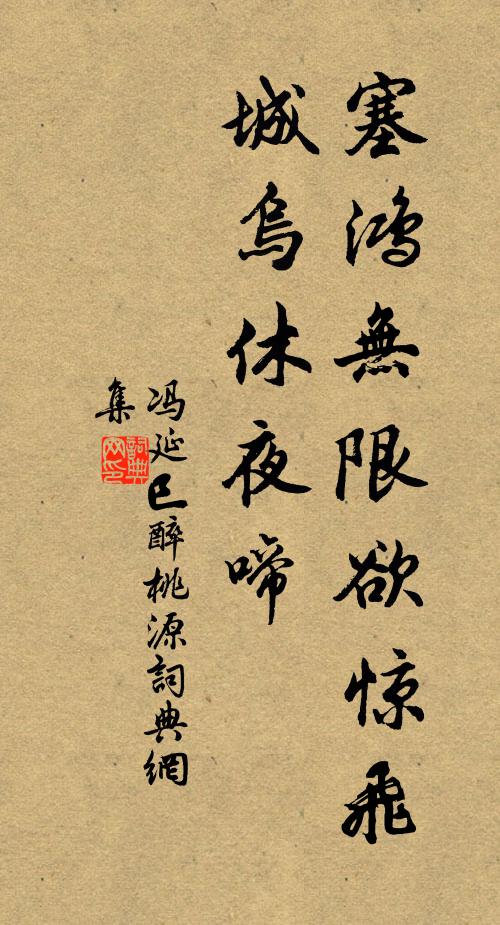 塞鸿無限欲惊飛
城烏休夜啼
冯延巳醉桃源詞典網
集
詞典网印